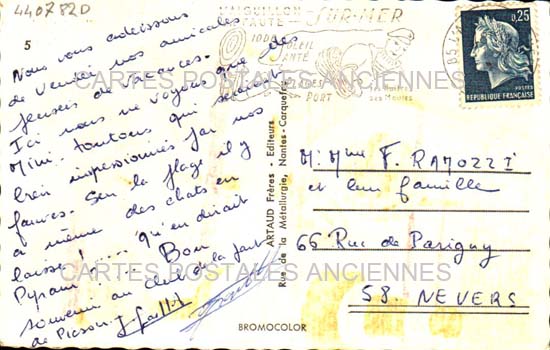 440782D
5
L'AIGUILLON
SUR-MER
1000
SOLEIL
SANTÉ
PLAGES
PORT
0,25
POSTES
REPUBLIQUE FRANÇAISE
Nous vous adressons
de Vendée nos amicales
pensées de vacances.
Ici nous ne voyons que des
Mini-toutous qui seraient
bien impressionnés par nos
fauves. Sur la plage il y
a même des chats en
laisse! Qu'en dirait
Pyram! ..... Bon
souvenir au club de la part
de Picson.
ARTAUD Frères - Editeurs
Rue de la Métallurgie, Nantes-Carquefou
M. Mme F. RAMOZZI
et leur famille
66 Rue de Parigny
58. NEVERS
BROMOCOLOR
CARTES POSTALES ANCIENNES
CARTES POSTALES ANCIENNES